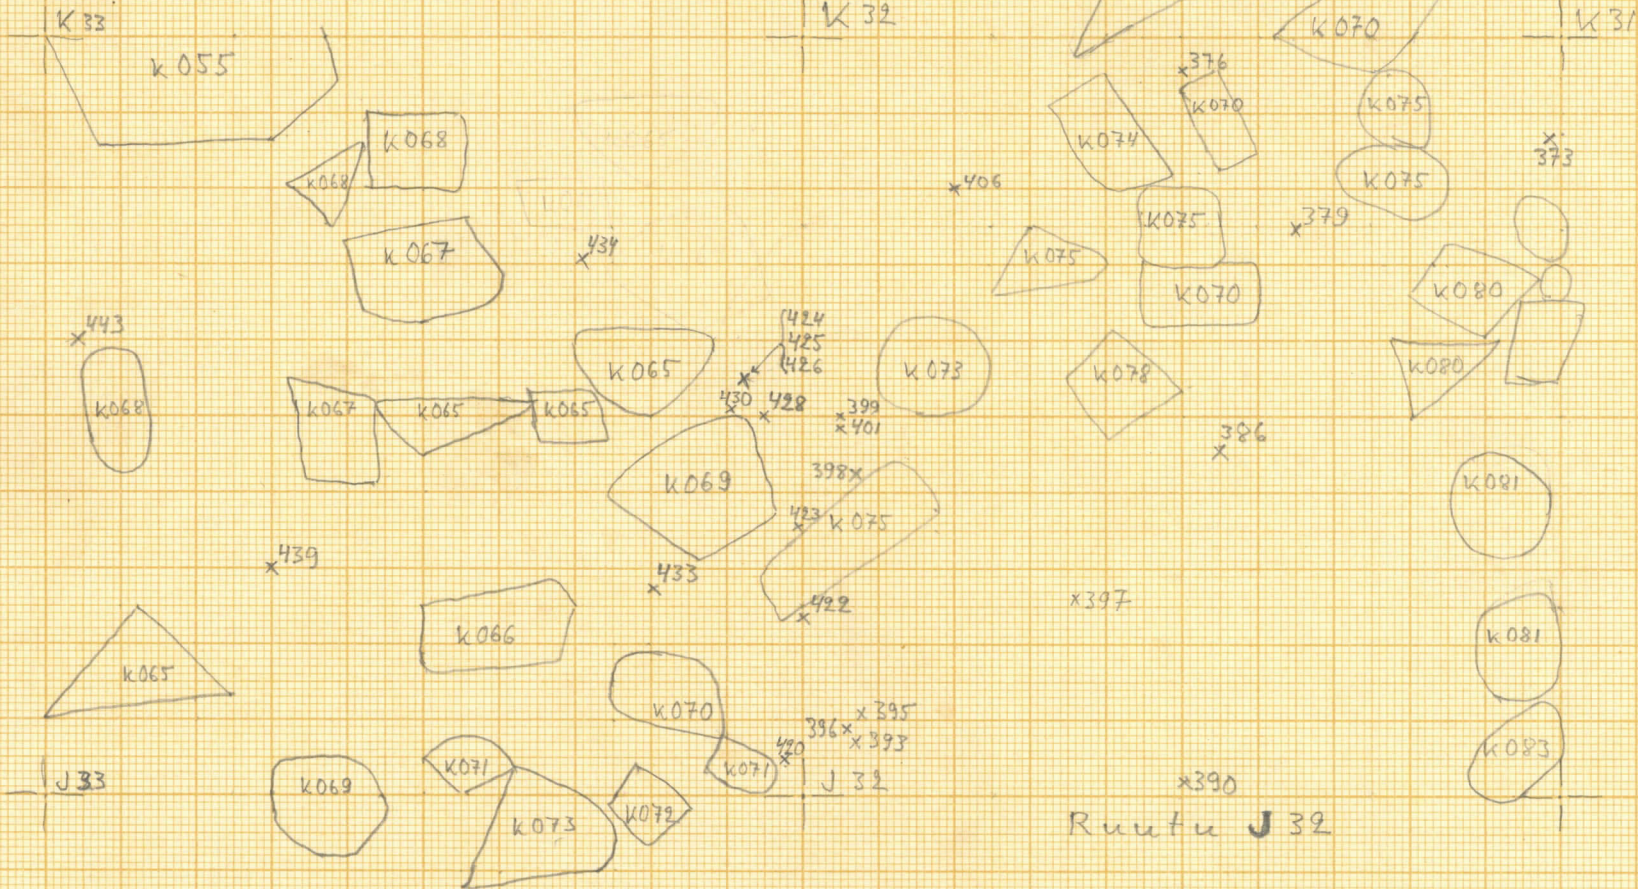 K 33
K 32
K 31
K 055
K 070
376
K 070
K 075
K 074
373
K 068
K 068
406
K 075
K 075
379
K 067
434
K 075
K 070
K 080
443
424
425
426
K 065
K 073
K 078
K 080
K 068
K 067
K 065
K 065
430
428
399
401
386
K 069
398
K 081
423
K 075
439
433
422
397
K 066
K 081
K 065
K 070
395
396
393
420
K 083
J 33
K 069
K 071
K 071
J 32
390
K 073
K 072
Ruutu J 32